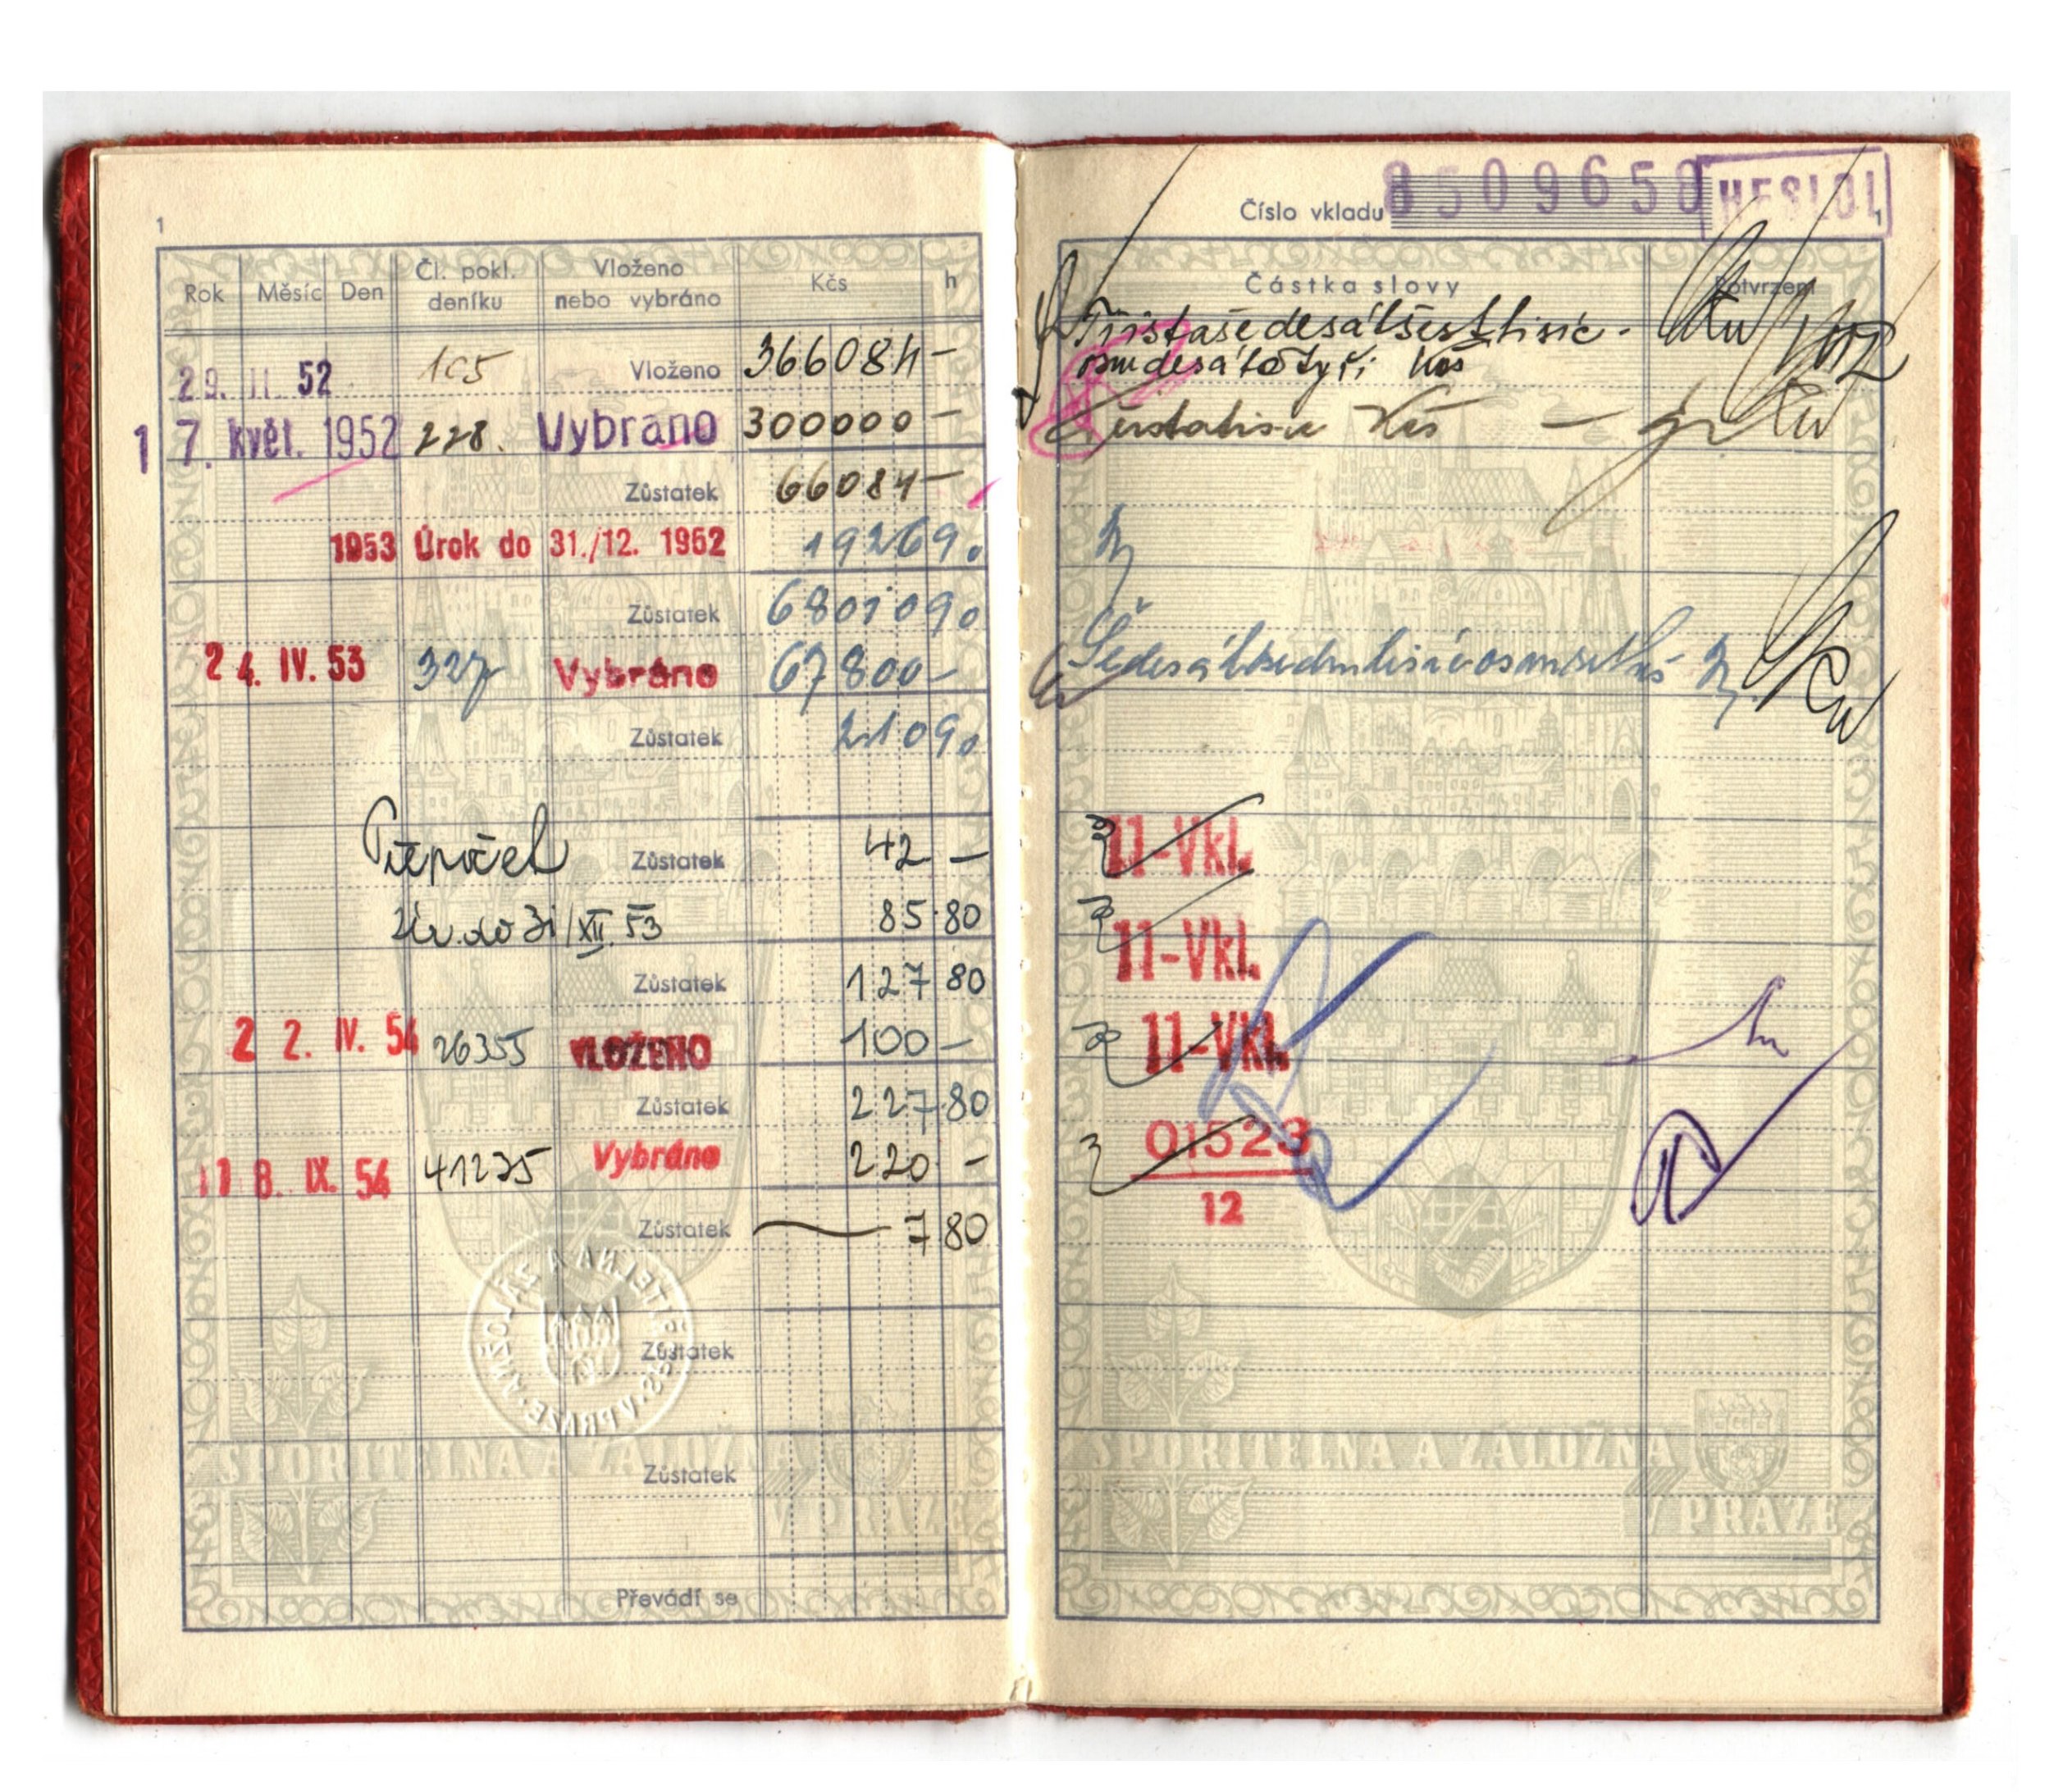 1
Rok Měsíc Den Čl. pokl. deníku Vloženo nebo vybráno Kčs h
29. II. 52 105 Vloženo 366084 —
17. květ. 1952 228. Vybráno 300000 —
Zůstatek 66084 —
1953 Úrok do 31./12. 1952 1926 90
Zůstatek 68010 90
24. IV. 53 327 Vybráno 67800 —
Zůstatek 210 90
Přepočet Zůstatek 42 —
Úr. do 31/XII. 53 85 80
Zůstatek 127 80
22. IV. 54 26355 VLOŽENO 100 —
Zůstatek 227 80
18. IX. 54 41235 Vybráno 220 —
Zůstatek 7 80
Zůstatek
Zůstatek
Převádí se
SPOŘITELNA A ZÁLOŽNA
V PRAZE
Číslo vkladu 8509658 HESLO! 1
Částka slovy Potvrzení
Třistašedesátšesttisíc-
osmdesátčtyři Kčs
Třistatisíc Kčs —
Šedesátsedmtisícosmset Kčs
11-Vkl.
11-Vkl.
11-Vkl.
01523
12
SPOŘITELNA A ZÁLOŽNA
V PRAZE